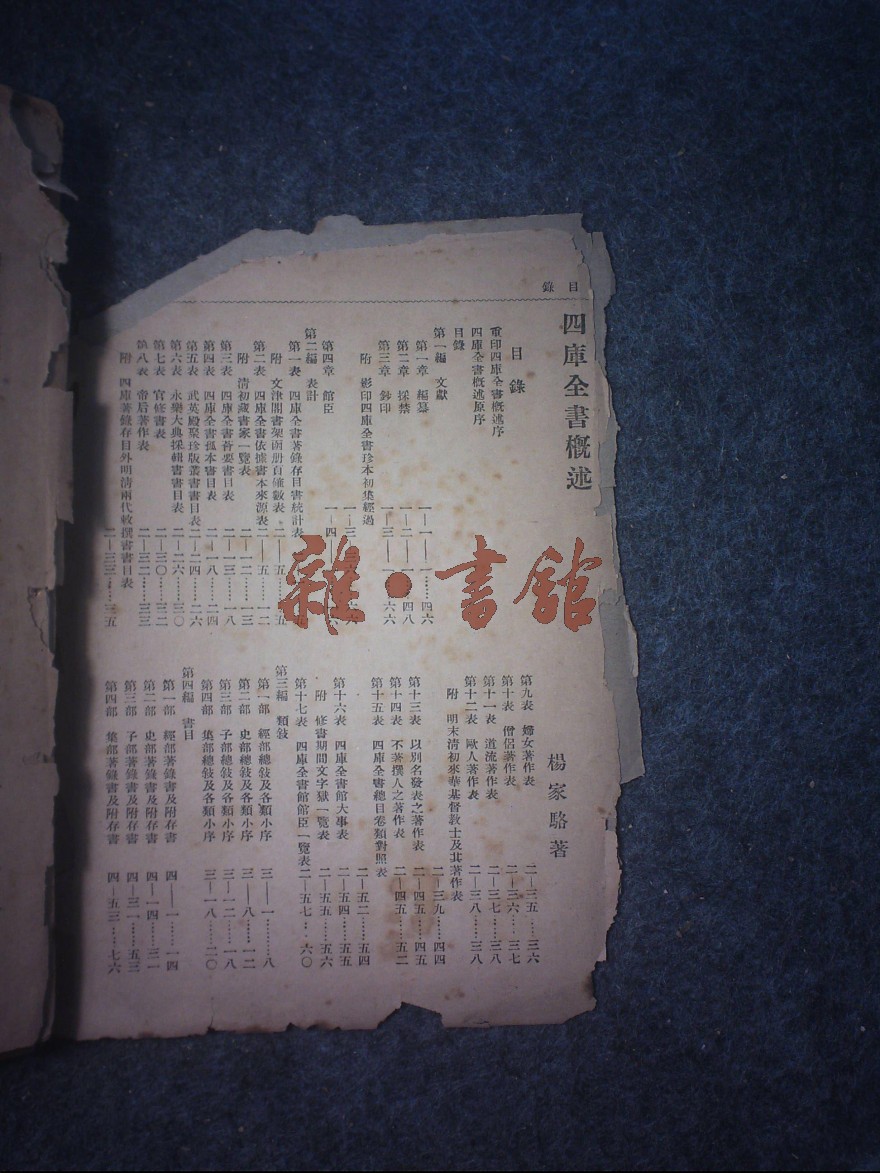 目錄
四庫全書概述
楊家駱著
目錄
重印四庫全書概述序
四庫全書概述原序
目錄
第一編 文獻
第一章 編纂 一—一……四六
第二章 採禁 一—四八
第三章 鈔印 一—六六
附 影印四庫全書珍本初集經過
第四章 館臣
第二編 表計
第一表 四庫全書著錄存目書統計表
附 文津閣書架函册頁確數表 二—五
第二表 四庫全書依據書本來源表 二—五……一二
附 清初藏書家一覽表 二—一二……一三
第三表 四庫全書薈要書目表 二—一三……一八
第四表 四庫全書孤本書目表 二—一八……二四
第五表 武英殿聚珍版叢書書目表 二—二四……二六
第六表 永樂大典採輯書書目表 二—二六……三〇
第七表 官修書表 二—三〇……三二
第八表 帝后著作表 二—三二……三三
附 四庫著錄存目外明清兩代敕撰書書目表 二—三三……三五
第九表 婦女著作表 二—三五……三六
第十表 僧侶著作表 二—三六……三七
第十一表 道流著作表 二—三七……三八
第十二表 歐人著作表 二—三八……三八
附 明末清初來華基督教士及其著作表 二—三九……四四
第十三表 以別名發表之著作表 二—四五……四五
第十四表 不著撰人之著作表 二—四五……五二
第十五表 四庫全書總目卷類對照表 二—五二……五四
第十六表 四庫全書館大事表 二—五四……五五
附 修書期間文字獄一覽表 二—五五……五六
第十七表 四庫全書館館臣一覽表 二—五七……六〇
第三編 類敍
第一部 經部總敍及各類小序 三—一……八
第二部 史部總敍及各類小序 三—八……一二
第三部 子部總敍及各類小序 三—一二……一八
第四部 集部總敍及各類小序 三—一八……二〇
第四編 書目
第一部 經部著錄書及附存書 四—一……一四
第二部 史部著錄書及附存書 四—一四……三一
第三部 子部著錄書及附存書 四—三一……五三
第四部 集部著錄書及附存書 四—五三……七六
雜·書館